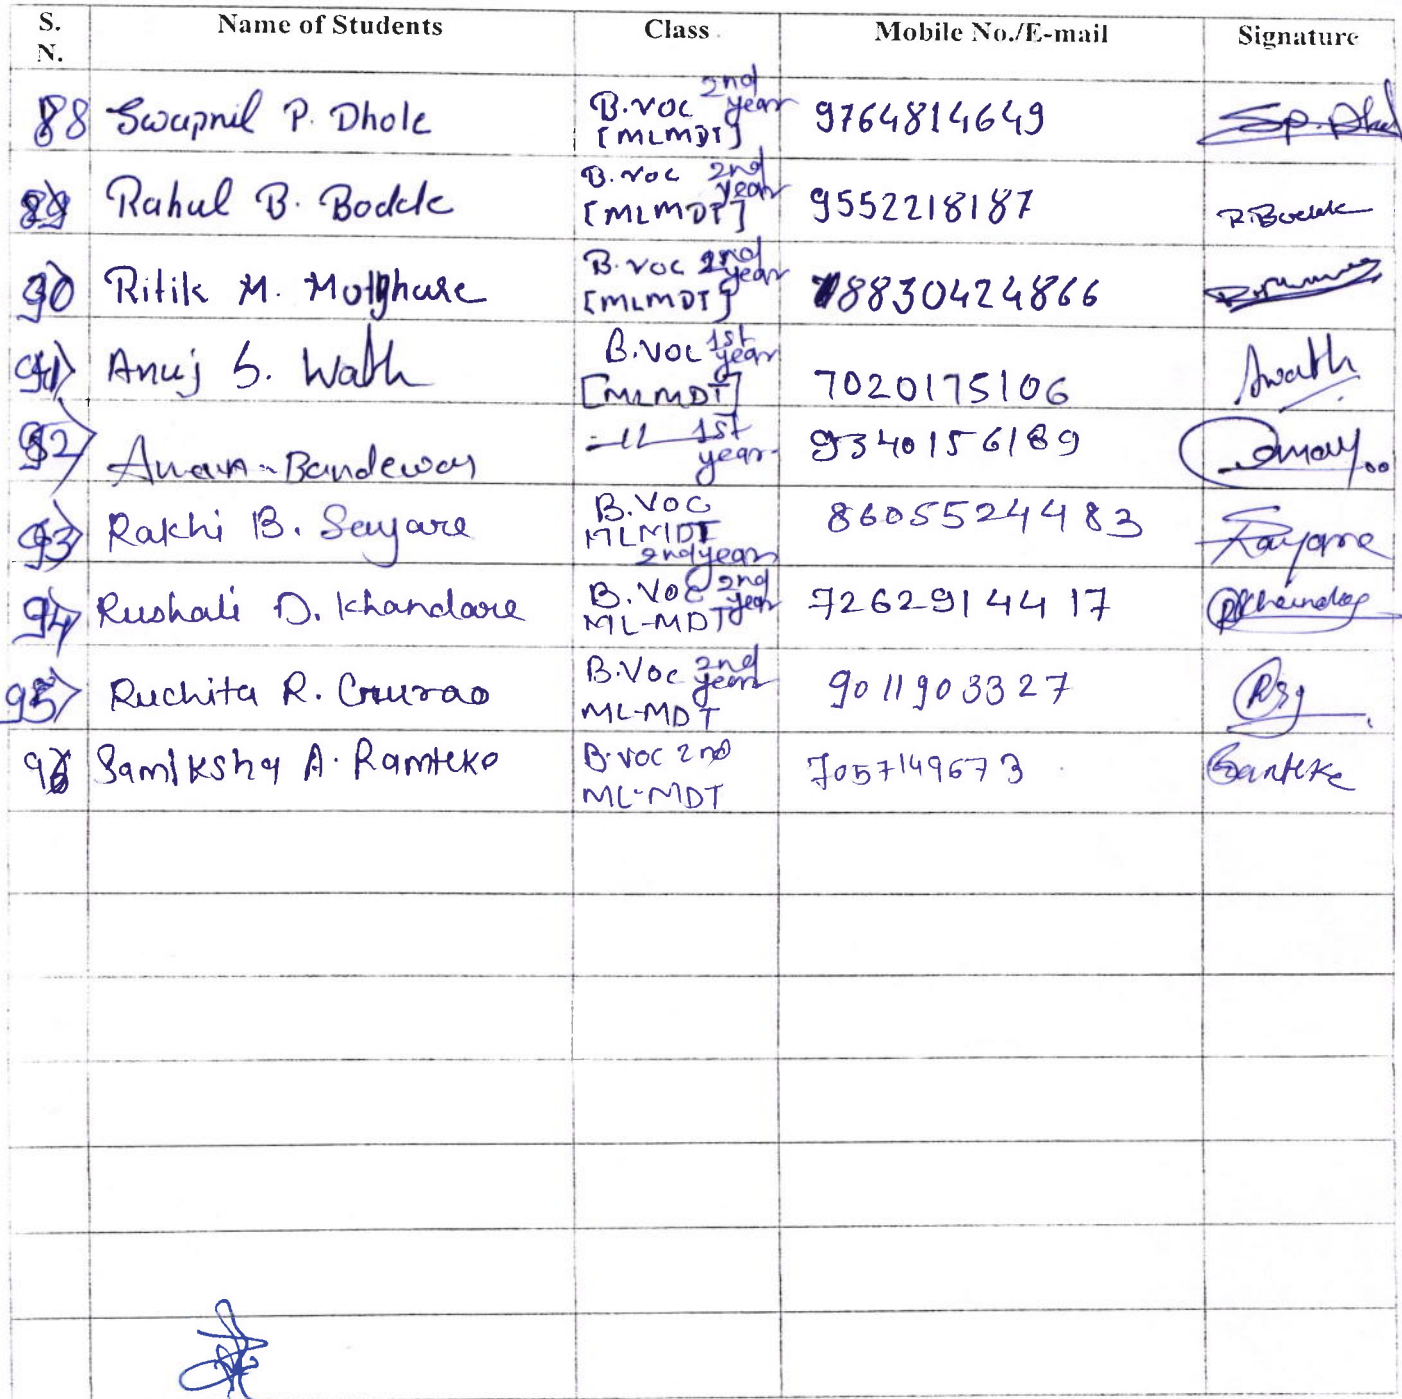 S. N. Name of Students Class Mobile No./E-mail Signature
88 Swapnil P. Dhole B.voc 2nd year [MLMDT] 9764814649 S.P. Dhol
89 Rahul B. Bodde B.voc 2nd year [MLMDT] 9552218187 R.Bodde
90 Ritik M. Motghare B.voc 2nd year [MLMDT] 8830424866
91) Anuj S. Wath B.voc 1st year [MLMDT] 7020175106 Awath
92) Bandewar -11- 1st year 9340156189
93) Rakhi B. Sayare B.VOC MLMDT 2nd year 8605524483 Sayare
94) Rushali D. Khandare B.Voc 2nd year ML-MDT 7262914417
95) Ruchita R. Gurao B.Voc 2nd year ML-MDT 9011903327 Rsg
96 Samiksha A. Ramteke B.voc 2nd ML-MDT 7057149673 Ramteke